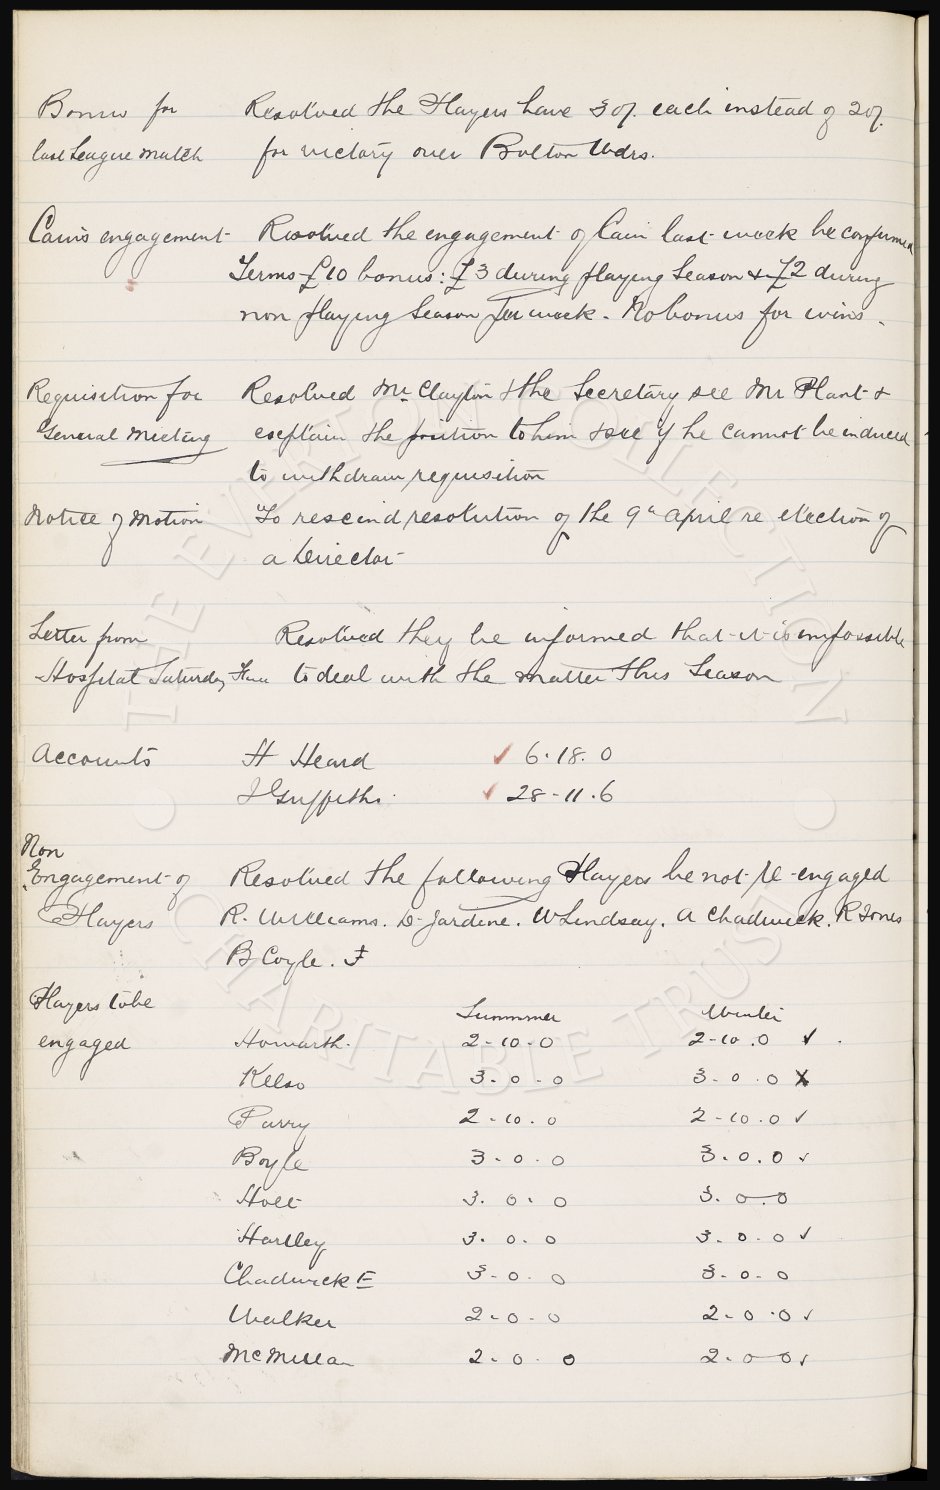 Bonus for Resolved the Players have 30/- each instead of 20/-
last League Match for victory over Bolton Wdrs.
Cain's engagement Resolved the engagement of Cain last week be confirmed
Terms £10 bonus: £3 during playing Season & £2 during
non playing Season per week. No bonus for wins.
Requisition for Resolved Mr Clayton & the Secretary see Mr Plant &
General Meeting explain the position to him & see if he cannot be induced
to withdraw requisition
Notice of Motion To rescind resolution of the 9th April re election of
a Director
Letter from Resolved they be informed that it is impossible
Hospital Saturday to deal with the matter this Season
Accounts H Heard ✓ 6.18.0
J Griffiths. ✓ 28-11.6
Non
Engagement of Resolved the following Players be not re-engaged
Players R. Williams. D. Jardine. W Lindsay. A Chadwick. R Jones
B Coyle.
Players to be Summmer Winter
engaged Howarth. 2-10-0 2-10.0 ✓
Kelso 3.0-0 3.0.0 X
Parry 2-10.0 2-10.0 ✓
Boyle 3.0.0 3.0.0 ✓
Holt 3.0.0 3.0.0
Hartley 3.0.0 3.0.0 ✓
Chadwick E 3.0.0 3.0.0
Walker 2-0-0 2-0-0 ✓
McMillan 2.0.0 2.0.0 ✓
THE EVERTON COLLECTION
CHARITABLE TRUST